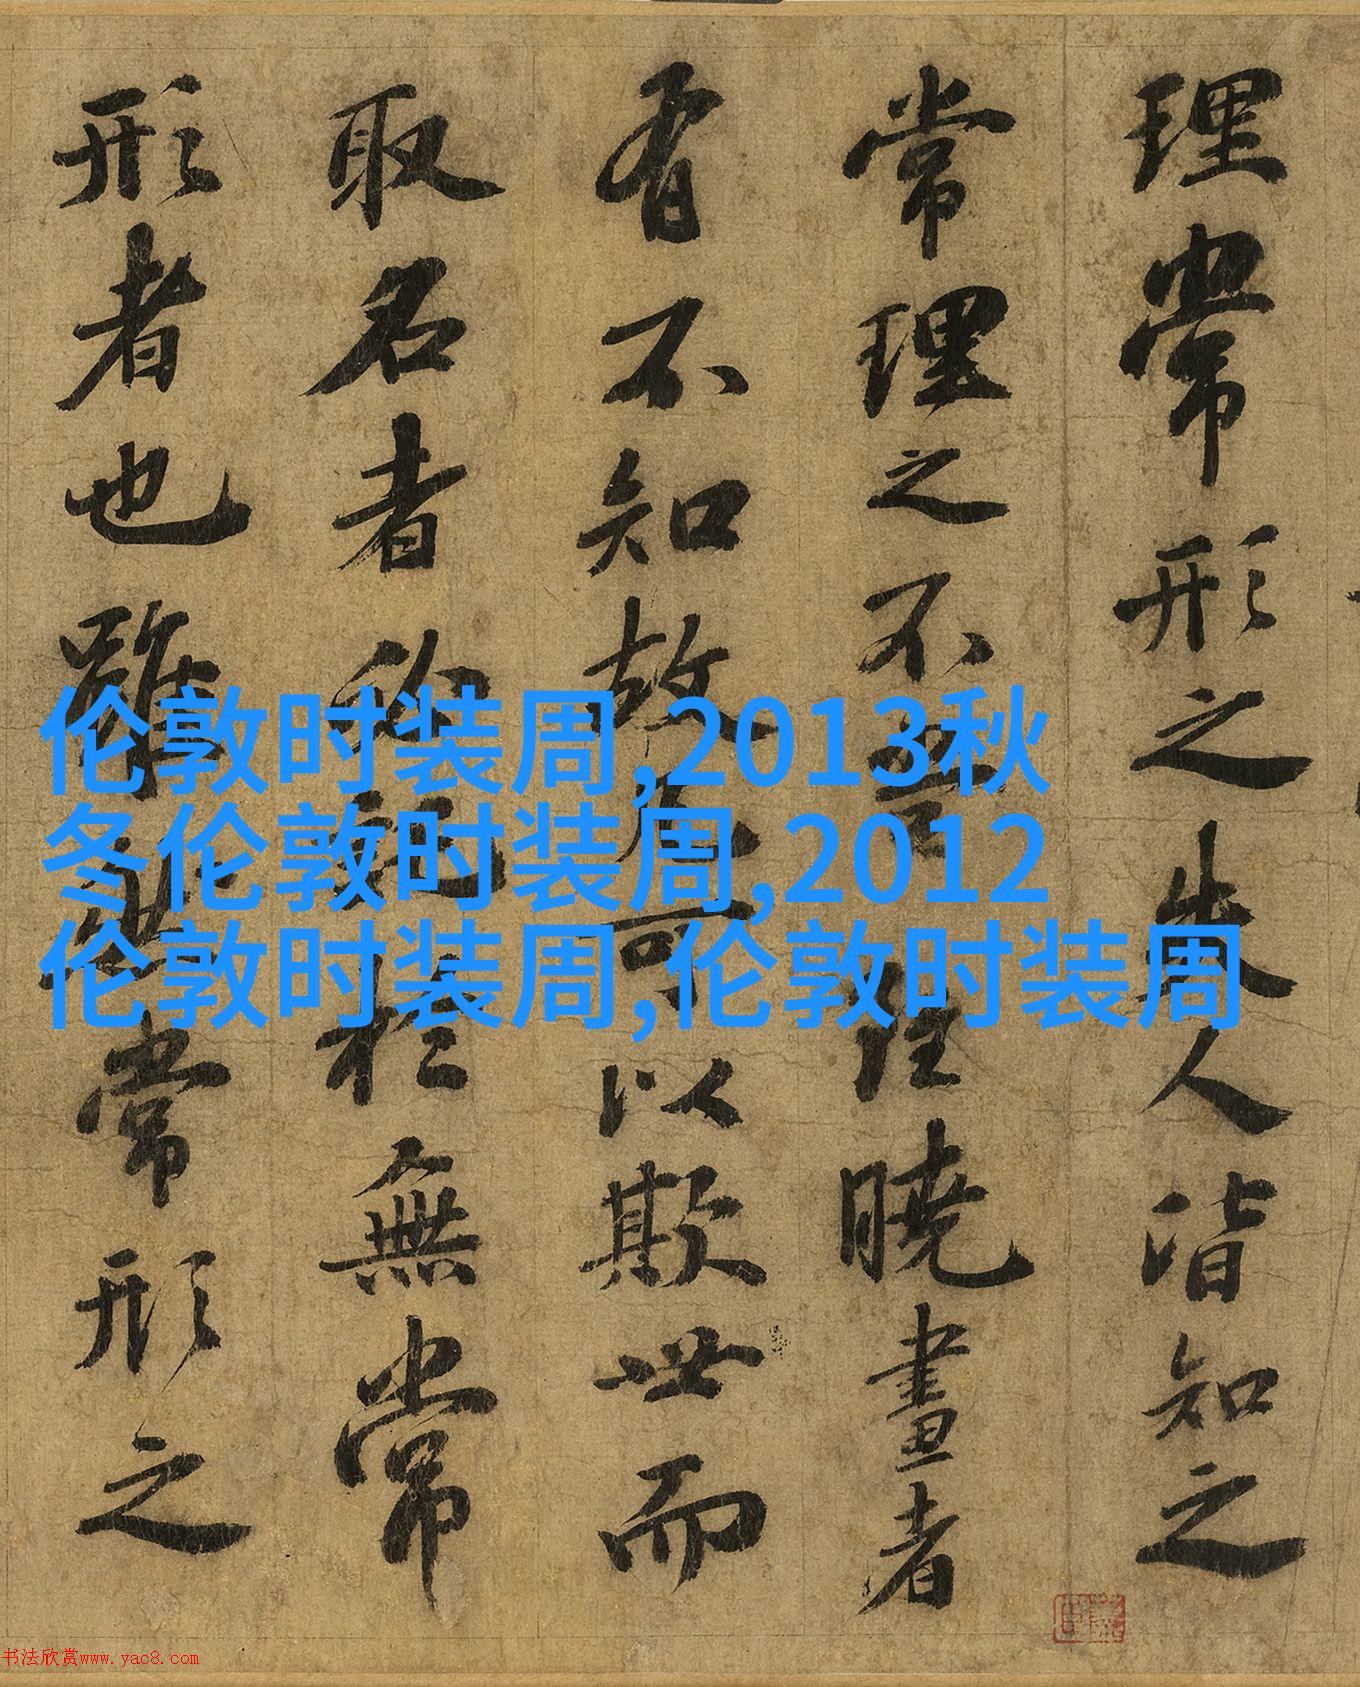 理常形之失人皆知之
常理之不曉畫者
有不知故可以欺世而
取名者於無常
形者也雖常形之
伦敦时装周,2013秋
冬伦敦时装周,2012
伦敦时装周,伦敦时装周
书法欣赏www.yac8.com